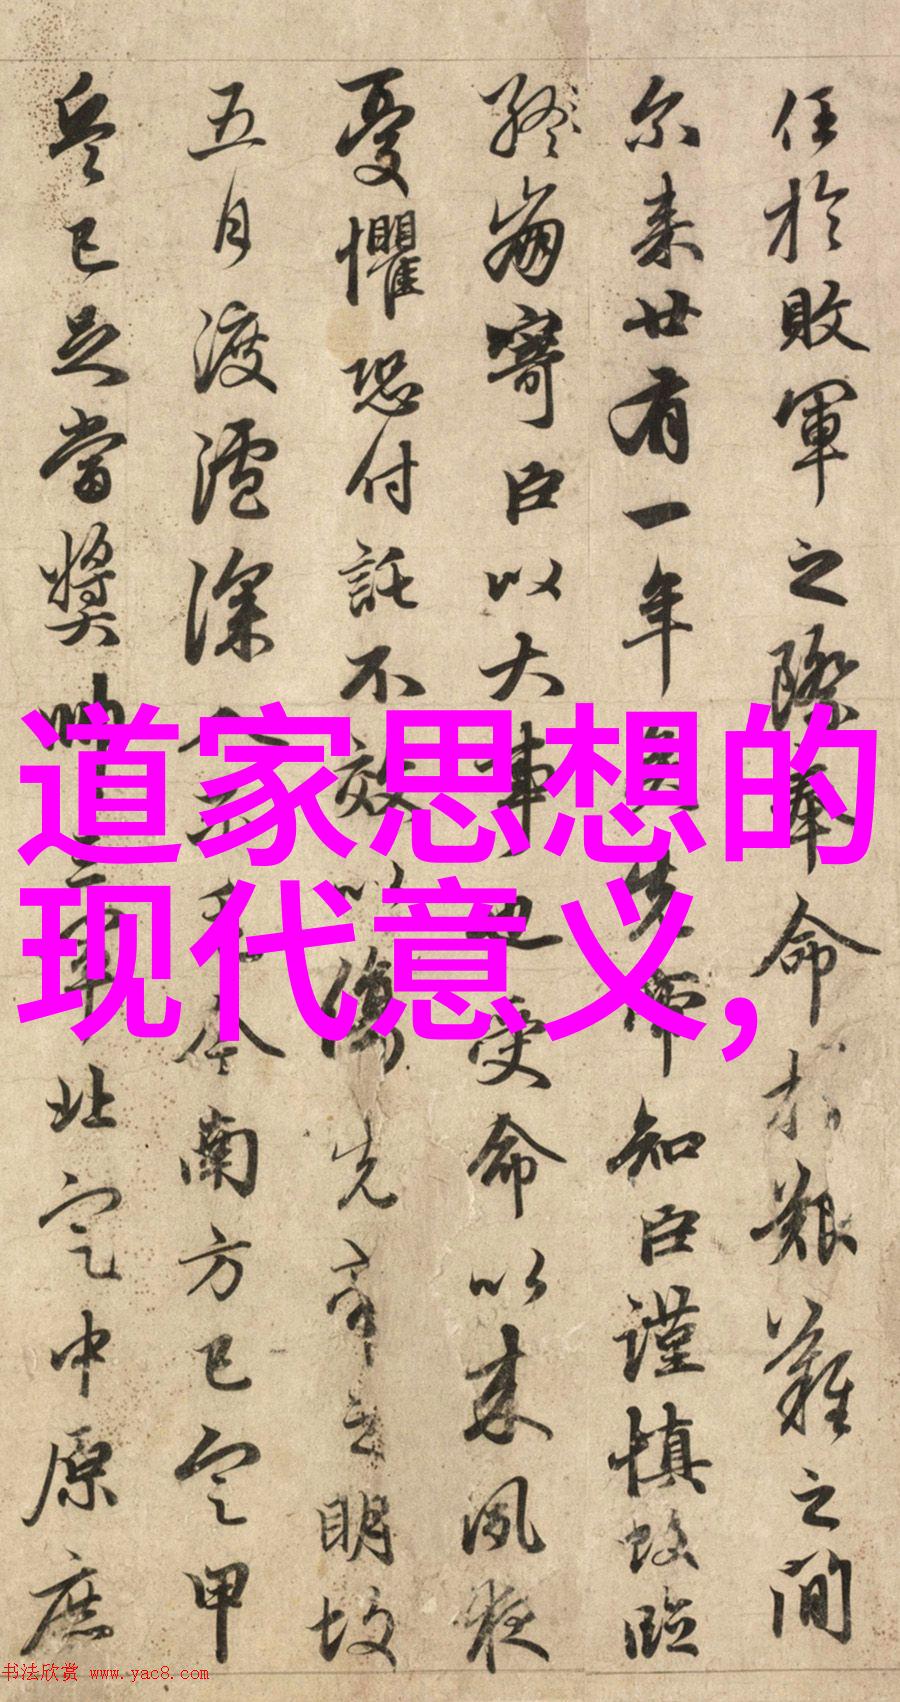 任於敗軍之際奉命於艱難之間
尔来廿有一年矣先帝知臣謹慎故臨
終崩寄臣以大事也受命以来夙夜
憂懼恐付託不效以傷先帝之明故
五月渡瀘深入不毛今南方已定甲
兵已足當奬帥三軍北定中原庶
道家思想的
现代意义,
书法欣赏 www.yac8.com